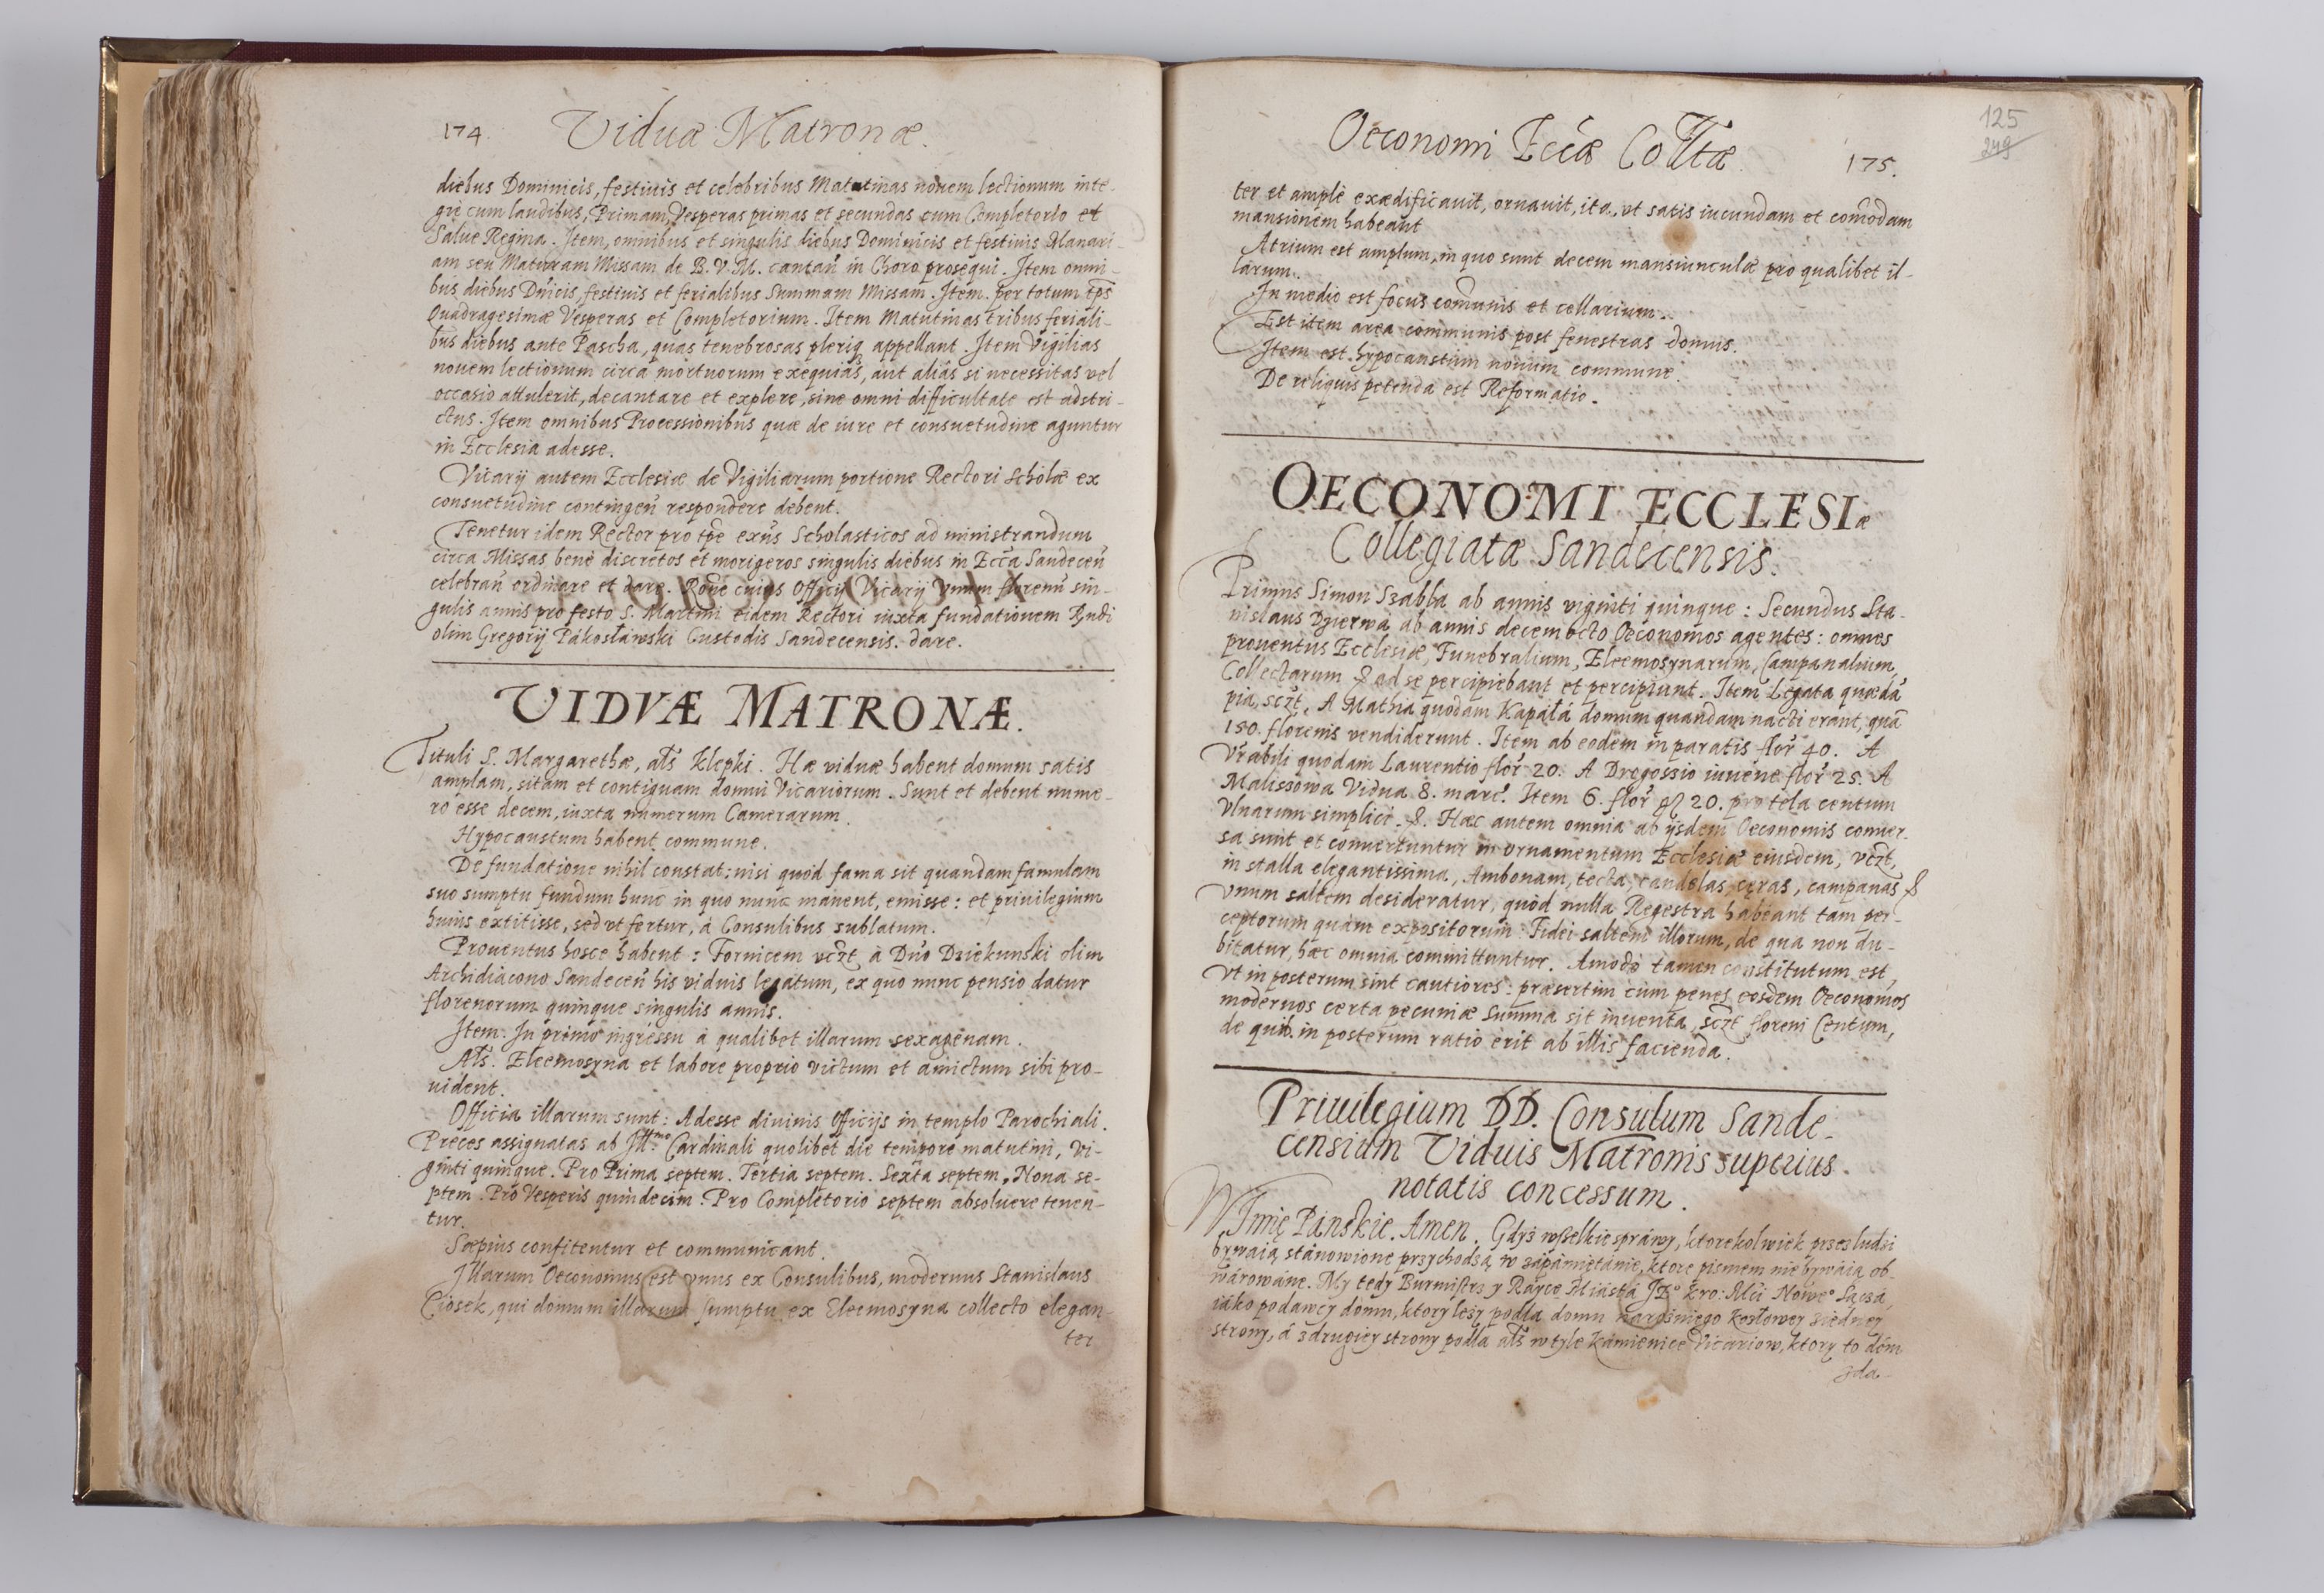 174.
Viduæ Matronæ.
diebus Dominicis, festiuis et celebribus Matutinas nouem lectionum inte-
gre cum laudibus, Primam, Vesperas primas et secundas cum Completorio et
Salue Regina. Item, omnibus et singulis diebus Dominicis et festiuis Manari-
am seu Maturam Missam de B. V. M. cantañ in Choro prosequi. Item omni-
bus diebus Dñicis, festiuis et ferialibus Summam Missam. Item per totum tp̃s
Quadragesimæ Vesperas et Completorium. Item Matutinas tribus feriali-
bus diebus ante Pascha, quas tenebrosas pleriq appellant. Item Vigilias
nouem lectionum circa mortuorum exequias, aut aliàs si necessitas vel
occasio attulerit, decantare et explere, sine omni difficultate est adstri-
ctus. Item omnibus Processionibus quæ de iure et consuetudine aguntur
in Ecclesia adesse.
Vicarij autem Ecclesiæ de Vigiliarum portione Rectori Scholæ ex
consuetudine contingeñ respondere debent.
Tenetur idem Rector pro tp̃e exñs Scholasticos ad ministrandum
circa Missas benè discretos et morigeros singulis diebus in Ecc̃a Sandeceñ
celebrañ ordinare et dare. Roñe cuius Officij Vicarij vnum florenũ sin-
gulis annis pro festo S. Martini eidem Rectori iuxta fundationem Rñdi
olim Gregorij Pakosławski Custodis Sandecensis. dare.
VIDVÆ MATRONÆ.
Tituli S. Margarethæ, al̃s Klepki. Hæ viduæ habent domum satis
amplam, sitam et contiguam domui Vicariorum. Sunt et debent nume-
ro esse decem, iuxta numerum Camerarum.
Hypocaustum habent commune.
De fundatione nihil constat: nisi quod fama sit quandam famulam
suo sumptu fundum hunc in quo nunc manent, emisse: et priuilegium
huius extitisse, sed vt fertur, à Consulibus sublatum.
Prouentus hosce habent: Fornicem vcz̃t à Dño Dziekunski olim
Archidiacono Sandeceñ his viduis legatum, ex quo nunc pensio datur
florenorum quinque singulis annis.
Item. In primo ingressu à qualibet illarum sexagenam.
Al̃s. Eleemosyna et labore proprio victum et amictum sibi pro-
uident.
Officia illarum sunt: Adesse diuinis Officijs in templo Parochiali.
Preces assignatas ab Ill.mo Cardinali quolibet die tempore matutini, vi-
ginti quinque. Pro Prima septem. Tertia septem. Sexta septem, Nona se-
ptem. Pro Vesperis quindecim. Pro Completorio septem absoluere tenen-
tur.
Sæpius confitentur et communicant.
Illarum Oeconomus est vnus ex Consulibus, modernus Stanislaus
Ciosek, qui domum illarum sumptu ex Eleemosyna collecto elegan-
ter
Oeconomi Ecc̃æ Coll̃tæ.
175.
125
249
ter et amplè exædificauit, ornauit, ita, vt satis iucundam et com̃odam
mansionem habeant
Atrium est amplum, in quo sunt decem mansiunculæ pro qualibet il-
larum.
In medio est focus com̃unis et cellarium.
Est item area communis post fenestras domus.
Item est hypocaustum nouum commune.
De reliquis petenda est Reformatio.
OECONOMI ECCLESIæ
Collegiatæ Sandecensis.
Primus Simon Szabla ab annis viginti quinque: Secundus Sta-
nislaus Dzierwa ab annis decem octo Oeconomos agentes: omnes
prouentus Ecclesiæ, Funebralium, Eleemosynarum, Campanalium,
Collectarum & ad se percipiebant et percipiunt. Item Legata quædã
pia, scz̃t, A Mathia quodam Kapałá domum quandam nacti erant, quã
180. florenis vendiderunt. Item ab eodem in paratis flor̃ 40. A
Vrabili quodam Laurentio flor̃ 20. A Dregossio iuuene flor̃ 25. A
Malissowa Vidua 8. marc̃. Item 6. flor̃ gr̃ 20. pro tela centum
Vlnarum simplici. &. Hæc autem omnia ab ijsdem Oeconomis conuer-
sa sunt et conuertuntur in ornamentum Ecclesiæ eiusdem, vcz̃t,
in stalla elegantissima, Ambonam, tecta, candelas, cęras, campanas &
Vnum saltem desideratur, quòd nulla Regestra habeant tam per-
ceptorum quàm expositorum. Fidei saltem illorum, de qua non du-
bitatur, hæc omnia committuntur. Amodò tamen constitutum est,
vt in posterum sint cautiores: præsertim cùm penes eosdem Oeconomos
modernos certa pecuniæ summa sit inuenta, scz̃t floreni Centum,
de quib. in posterum ratio erit ab illis facienda.
Priuilegium DD. Consulum Sande-
censium Viduis Matronis superius.
notatis concessum.
W Imię Panskie. Amen. Gdyż wszelkie sprawy, ktorekolwiek przez ludzi
bywaią stanowione przychodzą w zapamiętanie, ktore pismem nie bywaią ob-
warowane. My tedy Burmistrz y Rayce Miasta JE° Kro: Mći Nowe° Sącza,
iáko podawcy domu, ktory leży podla domu narożniego Kozłowey z iedney
strony, á z drugiey strony podla al̃s w tyle kamienice Vicariow, ktory to dóm
zda-